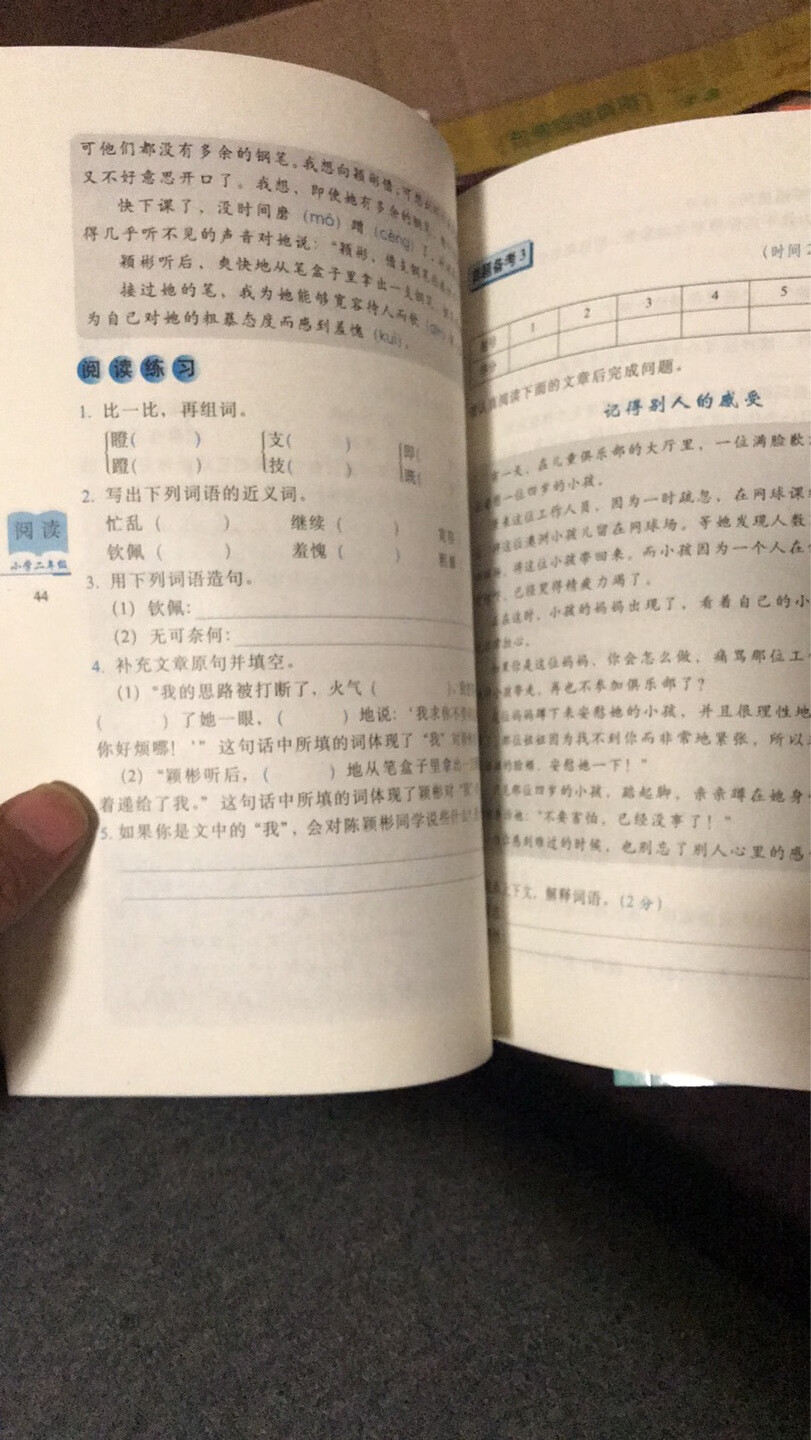 可他们都没有多余的钢笔。我想向颖彬借，可想
又不好意思开口了。我想，即使她有多余的钢笔，
快下课了，没时间磨（mó）蹭（cèng）了，
得几乎听不见的声音对她说：“颖彬，借支钢笔
颖彬听后，爽快地从笔盒子里拿出一支钢笔，
接过她的笔，我为她能够宽容待人而钦
为自己对她的粗暴态度而感到羞愧（kuì）。
阅读练习
1. 比一比，再组词。
瞪（　） 支（　） 即（
蹬（　） 技（　） 既（
2. 写出下列词语的近义词。
忙乱（　） 继续（　）
钦佩（　） 羞愧（　）
3. 用下列词语造句。
(1) 钦佩：
(2) 无可奈何：
4. 补充文章原句并填空。
(1) “我的思路被打断了，火气（　），
（　）了她一眼，（　）地说：‘我求你不
你好烦哪！’”这句话中所填的词体现了“我”对
(2) “颖彬听后，（　）地从笔盒子里拿出一
着递给了我。”这句话中所填的词体现了颖彬对“我”
5. 如果你是文中的“我”，会对陈颖彬同学说些什么？
阅读
小学二年级
44
备考 3
（时间 2
号 1 2 3 4 5
分
认真阅读下面的文章后完成问题。
记得别人的感受
有一天，在儿童俱乐部的大厅里，一位满脸歉
一位四岁的小孩。
来这位工作人员，因为一时疏忽，在网球课
这位澳洲小孩儿留在网球场。等她发现人数
将这位小孩带回来。而小孩因为一个人在
已经哭得精疲力竭了。
在这时，小孩的妈妈出现了，看着自己的小
如果你是这位妈妈，你会怎么做，痛骂那位工
小孩带走，再也不参加俱乐部了？
位妈妈蹲下来安慰她的小孩，并且很理性地
那位姐姐因为找不到你而非常地紧张，所以
的脸颊，安慰她一下！”
见那位四岁的小孩，踮起脚，亲亲蹲在她身
她：“不要害怕，已经没事了！”
感到难过的时候，也别忘了别人心里的感
上下文，解释词语。（2 分）